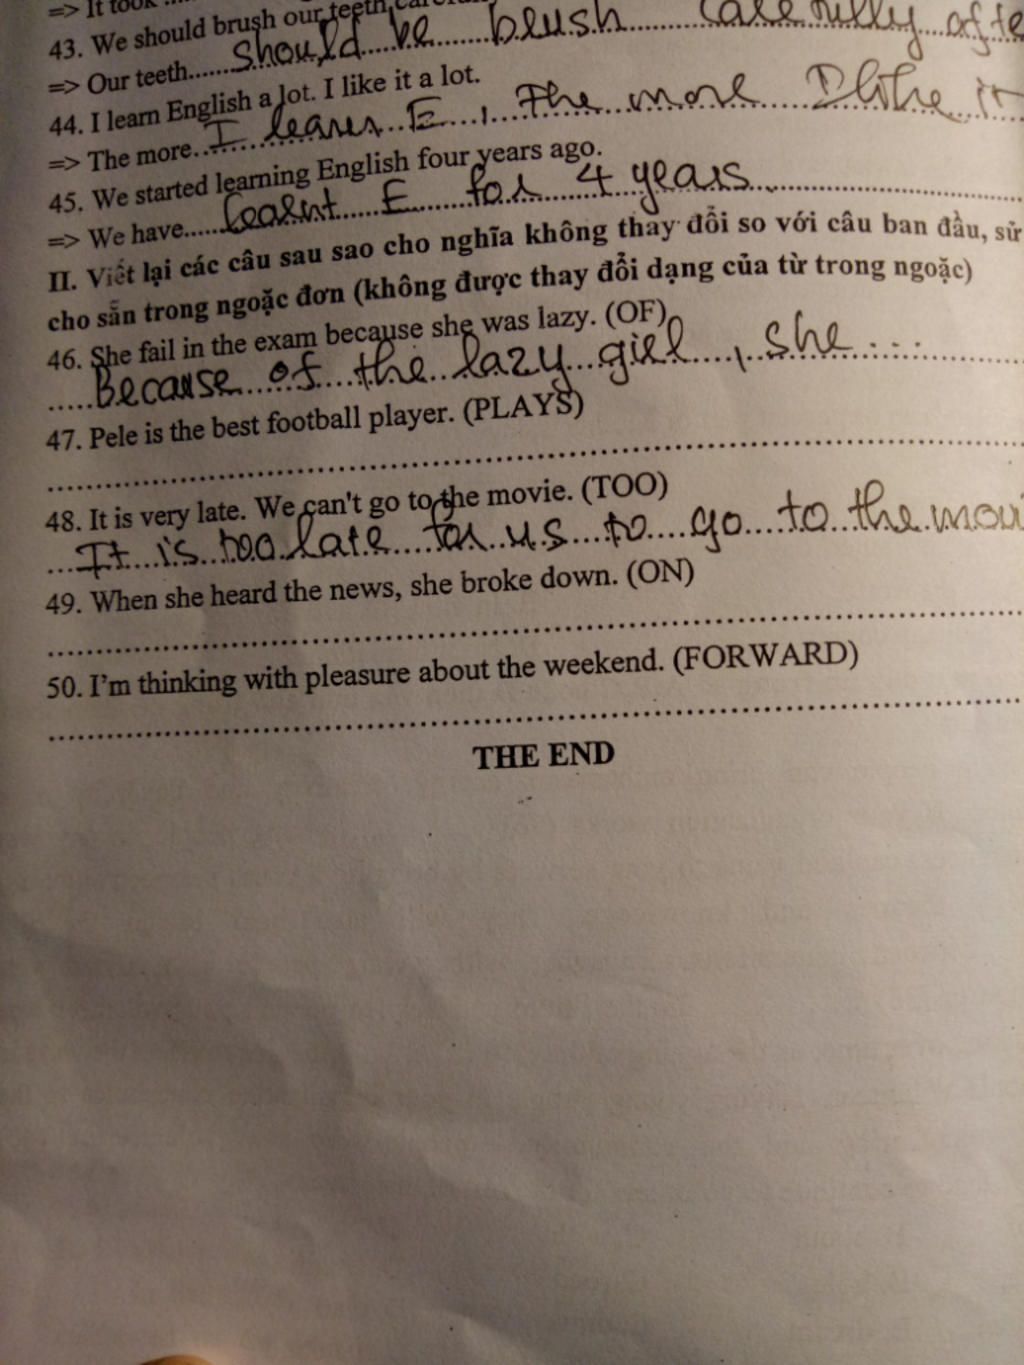 => It took
43. We should brush our teeth
=> Our teeth......should be brush carefully afte
44. I learn English a lot. I like it a lot.
=> The more...I learn E , the more I like it
45. We started learning English four years ago.
=> We have.....learnt E for 4 years
II. Viết lại các câu sau sao cho nghĩa không thay đổi so với câu ban đầu, sử
cho sẵn trong ngoặc đơn (không được thay đổi dạng của từ trong ngoặc)
46. She fail in the exam because she was lazy. (OF)
Because of the lazy girl , she ...
47. Pele is the best football player. (PLAYS)
48. It is very late. We can't go to the movie. (TOO)
It is too late for us to go to the movi
49. When she heard the news, she broke down. (ON)
50. I'm thinking with pleasure about the weekend. (FORWARD)
THE END